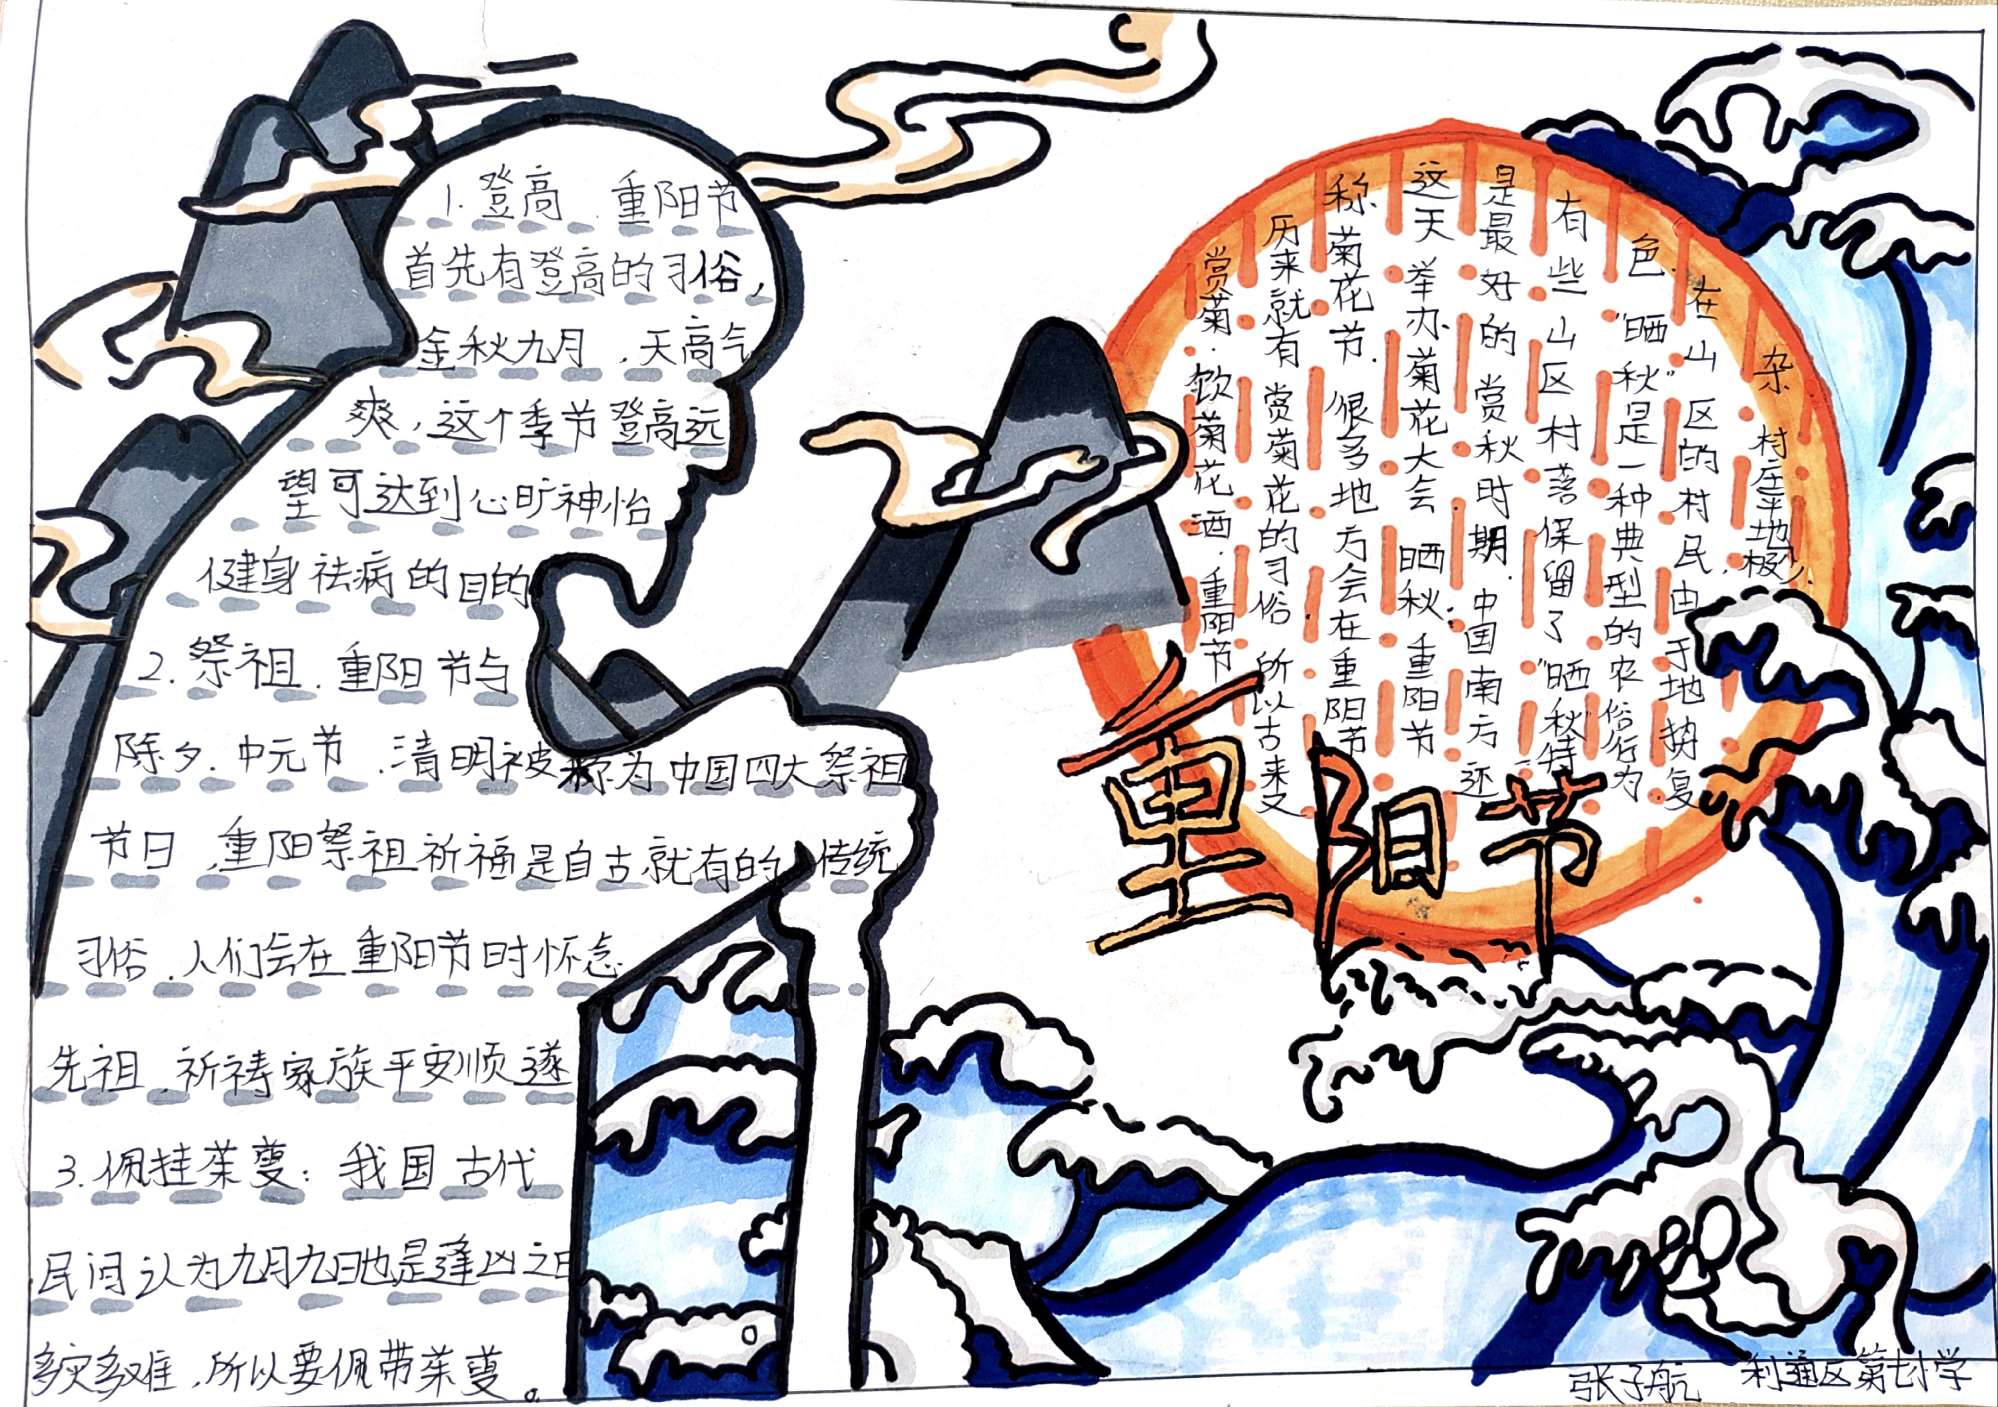 1.登高.重阳节
首先有登高的习俗,
金秋九月,天高气
爽,这个季节登高远
望可达到心旷神怡
健身祛病的目的
2.祭祖.重阳节与
除夕.中元节.清明被称为中国四大祭祖
节日,重阳祭祖祈福是自古就有的传统
习俗.人们会在重阳节时怀念
先祖,祈祷家族平安顺遂
3.佩挂茱萸:我国古代
民间认为九月九日也是逢凶之日
多灾多难,所以要佩带茱萸。
赏菊.饮菊花酒.重阳节
历来就有赏菊花的习俗 所以古来又
称菊花节.很多地方会在重阳节
这天举办菊花大会 晒秋:重阳节
是最好的赏秋时期.中国南方还
有些山区村落保留了“晒秋”特
色.“晒秋”是一种典型的农俗行为
在山区的村民,由于地势复
杂 村庄平地极少
重阳节
张子航 利通区第七小学